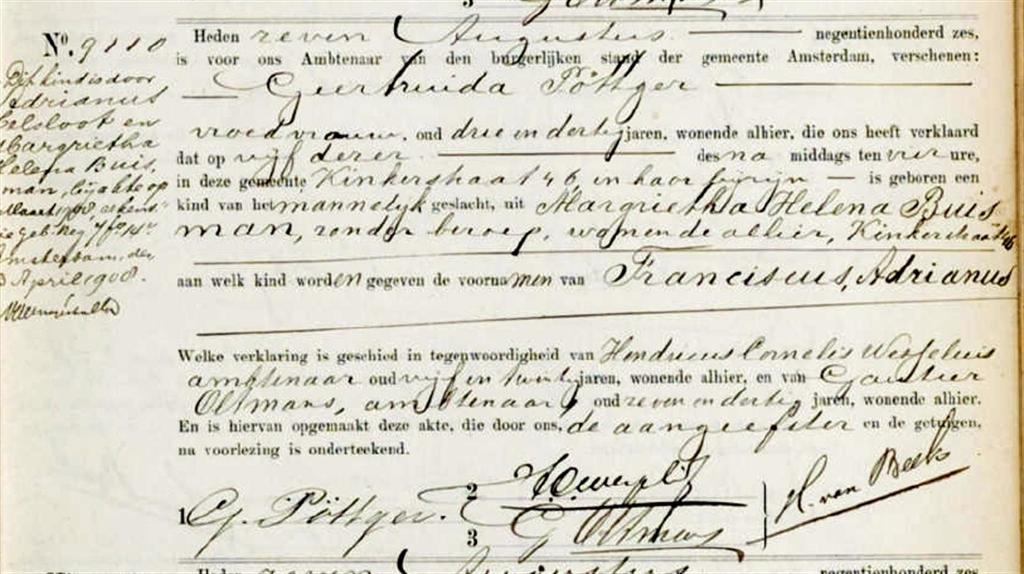 Nº. 9110
Heden zeven Augustus negentienhonderd zes,
is voor ons Ambtenaar van den burgerlijken stand der gemeente Amsterdam, verschenen:
Geertruida Pöttger
vroedvrouw, oud drie en dertig jaren, wonende alhier, die ons heeft verklaard
dat op vijf dezer des na middags ten vier ure,
in deze gemeente Kinkerstraat 46 in haar bijzijn is geboren een
kind van het mannelijk geslacht, uit Margrietha Helena Buis
man, zonder beroep, wonende alhier, Kinkerstraat 46
aan welk kind worden gegeven de voornamen van Franciscus, Adrianus
Welke verklaring is geschied in tegenwoordigheid van Hendricus Cornelis
ambtenaar oud vijf en twintig jaren, wonende alhier, en van Gautier
Oltmans, ambtenaar, oud zeven en dertig jaren, wonende alhier.
En is hiervan opgemaakt deze akte, die door ons, de aangeefster en de getuigen,
na voorlezing is onderteekend.
1 G. Pöttger.
2
3 G Oltmans
H. van Beek
Dit kind is door
Adrianus
en
Margrietha
Helena Buis
man, bij akte op
Maart 1908, erkend
Amsterdam, den
April 1908.
Heden zeven Augustus negentienhonderd zes,